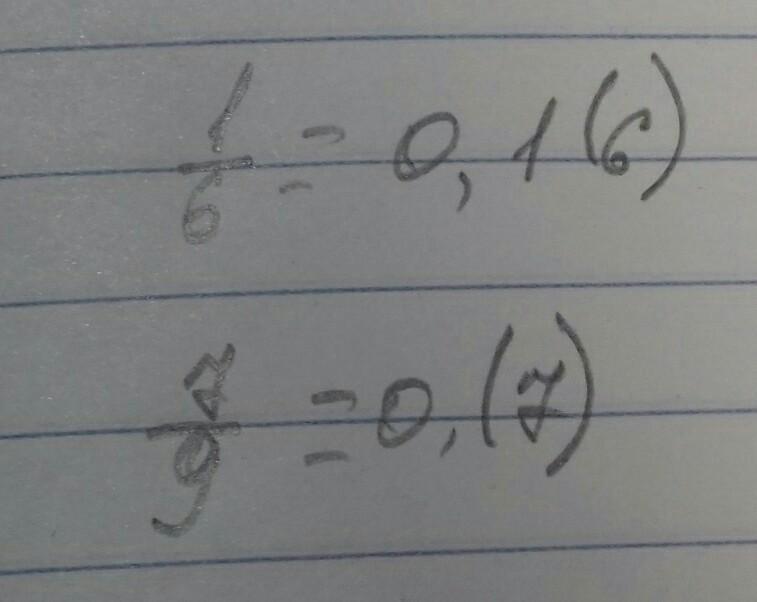 1/6 = 0,1(6)
7/9 = 0,(7)